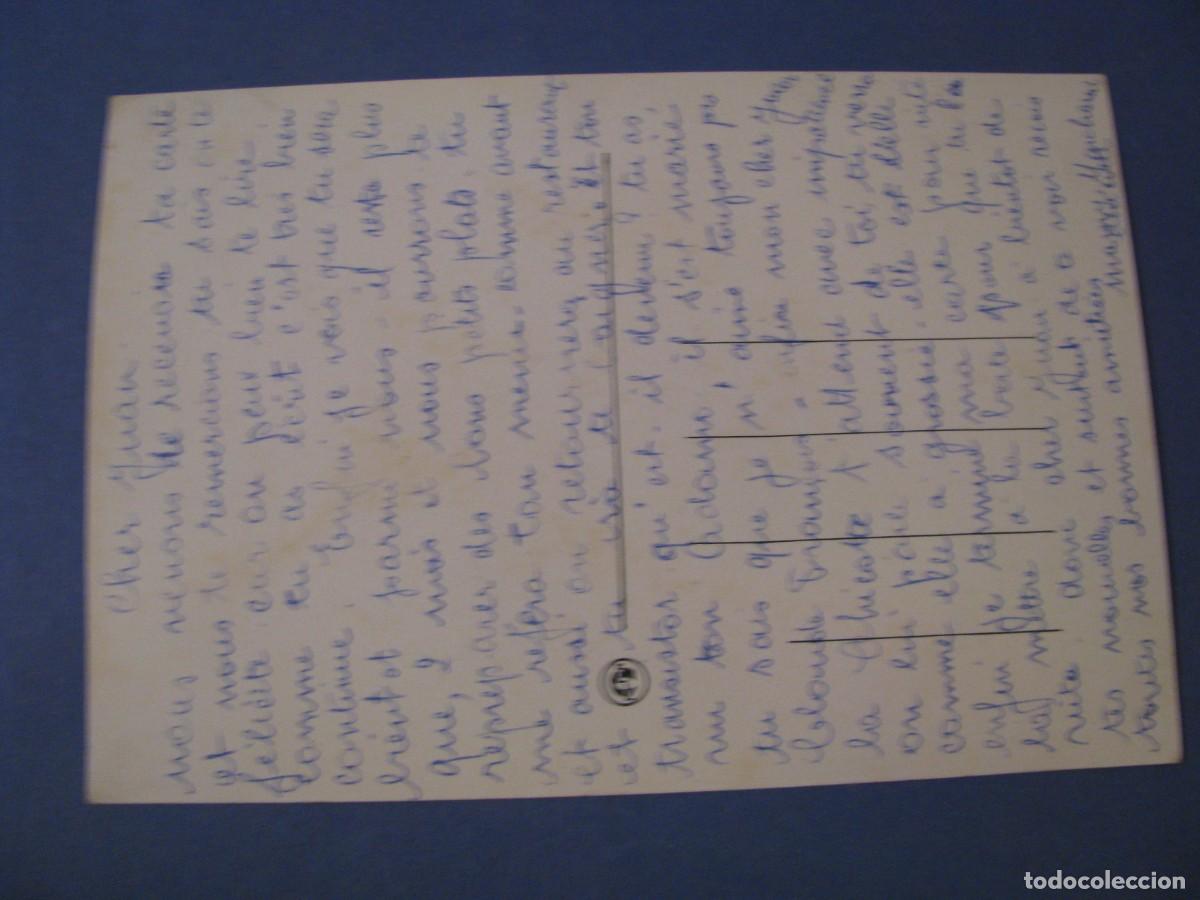 Cher Juan.
nous venons de recevoir ta carte
et nous te remercions tu sais on te
félicite car on peux bien te lire
comme tu as écrit c'est très bien
continue. Enfin je vois que tu sera
bientot parmi nous. il reste plus
que, 2 mois et nous pourrons te
repréparer des bons petits plats. tu
me refera ton menu. comme avant
et aussi on retournera au restaurant
et tu ira et ton
transistor qu'est. il devenu? tu as
vu ton il s'est marié,
tu sais que je n' toujours pas
enfin mon cher Juan
la t'attend avec impatience
on lui parle souvent de toi, tu verra
comme elle a grossie. elle est belle
enfin je termine ma carte pour vite
la mettre à la boite pour que tu l'ai
vite. donc cher Juan à bientot de
tes nouvelles et surtout de te voir
toutes nos bonnes amitiés
todocoleccion